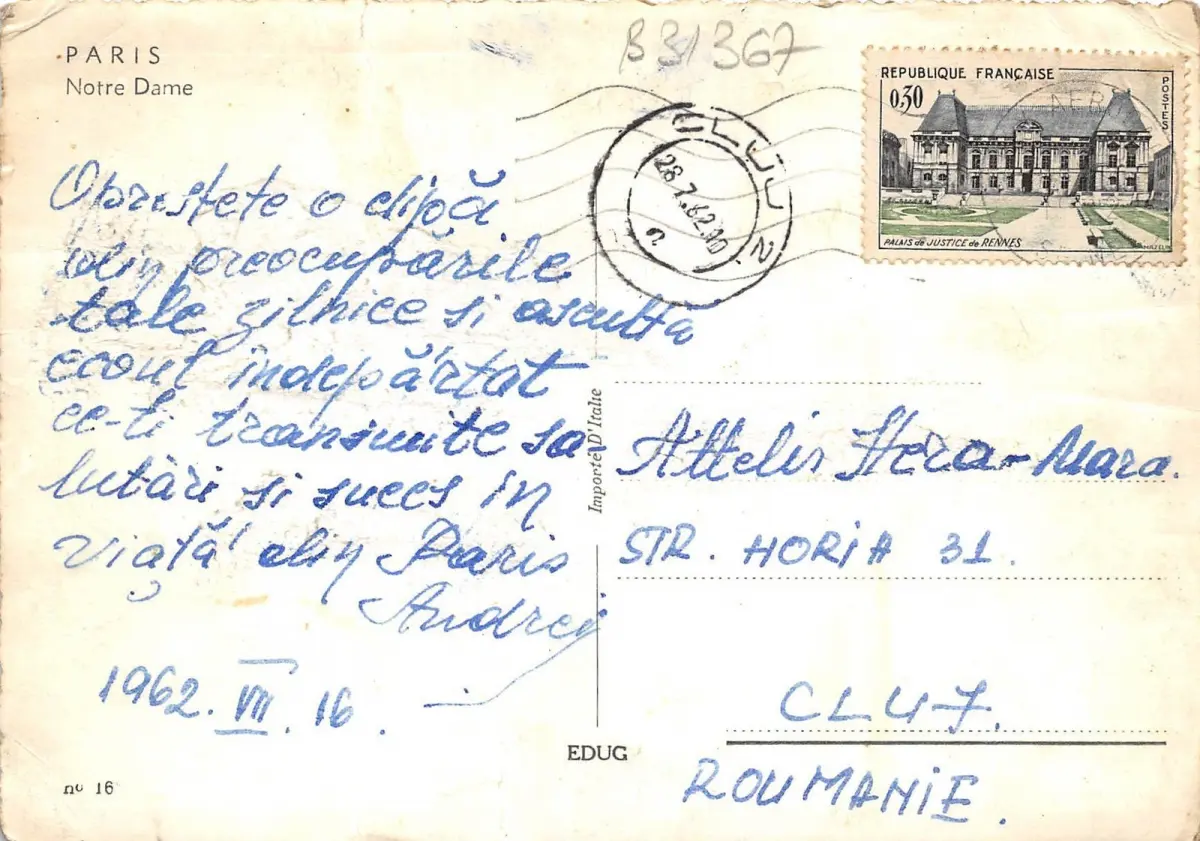 PARIS
Notre Dame
B31367
REPUBLIQUE FRANÇAISE
0,30
POSTES
PALAIS de JUSTICE de RENNES
CLUJ
28.7.62.
Oprește te o clipă
din preocupările
tale zilnice si asculta
ecoul îndepărtat
ce-ti transmite sa-
lutări si succes in
viață din Paris
Andrej
1962. VII. 16
Importé D'Italie
Hera-Mara.
STR. HORIA 31.
CLUJ.
ROUMANIE.
EDUG
no 16